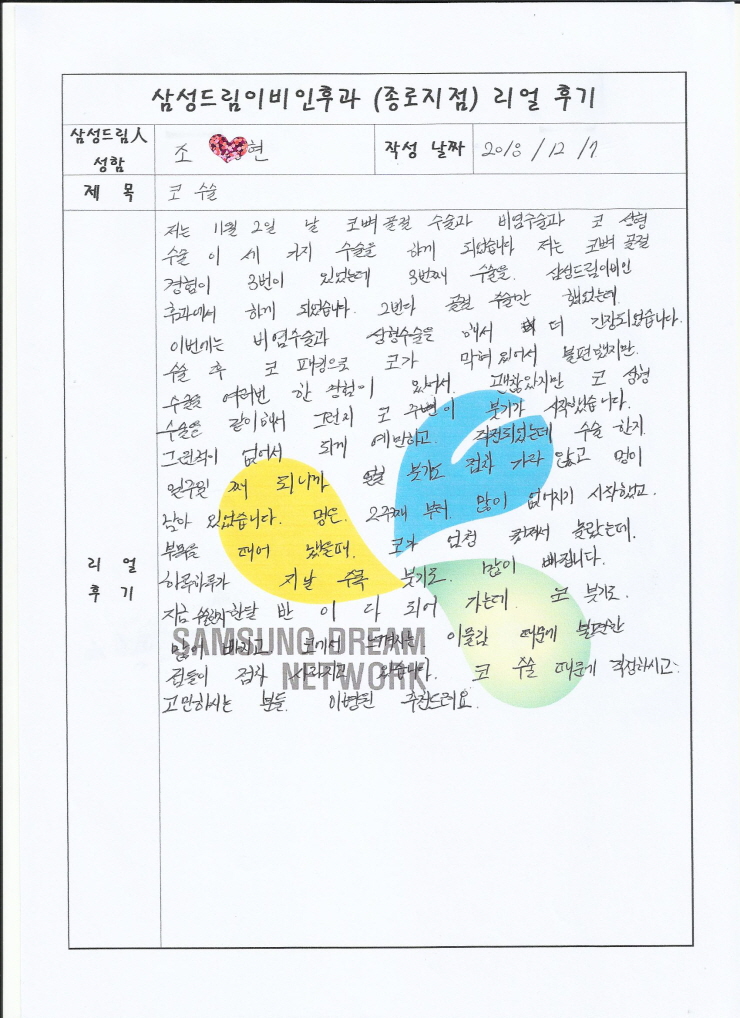 삼성드림이비인후과 (종로지점) 리얼 후기
삼성드림人 성함 조 현 작성 날짜 2018 / 12 / 7
제 목 코 수술
리 얼 후 기
저는 11월 2일 날 코뼈 골절 수술과 비염수술과 코 성형
수술 이 세 가지 수술을 하게 되었습니다 저는 코뼈 골절
경험이 3번이 있었는데 3번째 수술을. 삼성드림이비인
후과에서 하게 되었습니다. 2번다 골절 수술만 했었는데.
이번에는 비염수술과 성형수술을 해서 더 긴장되었습니다.
수술 후 코 패킹으로 코가 막혀 있어서 불편했지만.
수술을 여러번 한 경험이 있어서. 괜찮았지만 코 성형
수술을 같이해서 그런지 코 주변이 붓기가 시작했습니다.
그런적이 없어서 되게 예민하고. 걱정되었는데 수술 한지
일주일 째 되니까 얼굴 붓기도 점차 가라 앉고 멍이
남아 있었습니다. 멍은. 2주째 부터. 많이 없어지기 시작했고.
부목을 떼어 냈을때. 코가 엄청 커져서 놀랐는데.
하루하루가 지날 수록 붓기도. 많이 빠집니다.
지금 한달 반 이 다 되어 가는데. 코 붓기도.
많이 빠지고 코에서 느껴지는. 이물감 때문에 불편한
점들이 점차 사라지고 있습니다. 코 수술 때문에 걱정하시고.
고민하시는 분들. 이병원 추천드려요.
SAMSUNG DREAM
NETWORK